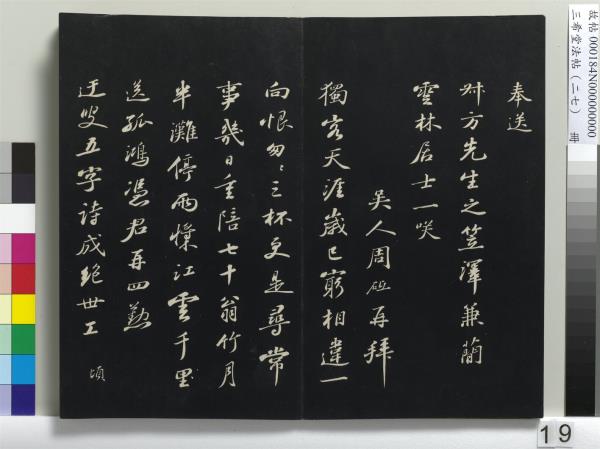 奉送
叔方先生之笠澤兼蘭
雲林居士一咲
吳人周砥再拜
獨客天涯歲已窮相違一
向恨匆〻三杯交是尋常
事幾日重陪七十翁竹月
半灘停雨㦗江雲千里
送孤鴻憑君再四勲
迂叟五字詩成絕世工
頃
故帖 000184N000000000
三希堂法帖(二七) 冊
19